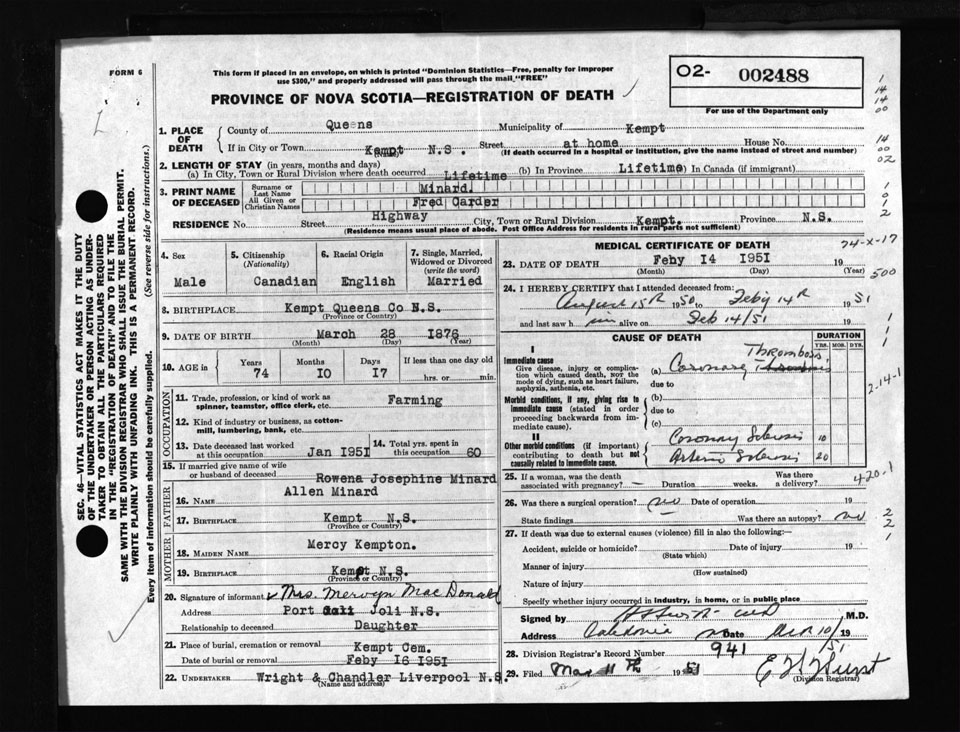 FORM 6
This form if placed in an envelope, on which is printed "Dominion Statistics—Free, penalty for improper
use $300," and properly addressed will pass through the mail "FREE"
PROVINCE OF NOVA SCOTIA—REGISTRATION OF DEATH
O2- 002488
For use of the Department only
1. PLACE OF DEATH
County of Queens Municipality of Kempt
If in City or Town Kempt N.S. Street at home House No.
(If death occurred in a hospital or institution, give the name instead of street and number)
2. LENGTH OF STAY (in years, months and days)
(a) In City, Town or Rural Division where death occurred Lifetime (b) In Province Lifetime In Canada (if immigrant)
3. PRINT NAME OF DECEASED
Surname or Last Name Minard.
All Given or Christian Names Fred Carder
RESIDENCE No. Street Highway City, Town or Rural Division Kempt. Province N.S.
(Residence means usual place of abode. Post Office Address for residents in rural parts not sufficient)
4. Sex
Male
5. Citizenship (Nationality)
Canadian
6. Racial Origin
English
7. Single, Married, Widowed or Divorced (write the word)
Married
8. BIRTHPLACE Kempt Queens Co N.S.
(Province or Country)
9. DATE OF BIRTH March 28 1876
(Month) (Day) (Year)
10. AGE in Years Months Days If less than one day old
74 10 17 hrs. or min.
OCCUPATION
11. Trade, profession, or kind of work as
spinner, teamster, office clerk, etc. Farming
12. Kind of industry or business, as cotton-
mill, lumbering, bank, etc.
13. Date deceased last worked at this occupation Jan 1951
14. Total yrs. spent in this occupation 60
15. If married give name of wife
or husband of deceased Rowena Josephine Minard
FATHER
16. Name Allen Minard
17. Birthplace Kempt N.S.
(Province or Country)
MOTHER
18. Maiden Name Mercy Kempton.
19. Birthplace Kempt N.S.
(Province or Country)
20. Signature of informant Mrs. Mervyn MacDonald
Address Port Joli N.S.
Relationship to deceased Daughter
21. Place of burial, cremation or removal Kempt Cem.
Date of burial or removal Feby 16 1951
22. UNDERTAKER Wright & Chandler Liverpool N.S.
(Name and address)
MEDICAL CERTIFICATE OF DEATH
74-X-17
23. DATE OF DEATH Feby 14 1951 19
(Month) (Day) (Year)
500
24. I HEREBY CERTIFY that I attended deceased from:
August 15th 1950 to Feb'y 14th 1951
and last saw him alive on Feb 14/51 19
CAUSE OF DEATH
DURATION
YRS. MOS. DYS.
I
Immediate cause
Give disease, injury or complica-
tion which caused death, NOT the
mode of dying, such as heart failure,
asphyxia, asthenia, etc.
(a) Coronary Thrombosis
due to
Morbid conditions, if any, giving rise to
immediate cause (stated in order
proceeding backwards from im-
mediate cause).
(b)
due to
(c)
II
Other morbid conditions (if important)
contributing to death but not
causally related to immediate cause.
Coronary Sclerosis 10
Arterio Sclerosis 20
2-14-1
25. If a woman, was the death
associated with pregnancy? — Duration weeks. Was there a delivery?
420.1
26. Was there a surgical operation? no Date of operation 19
State findings Was there an autopsy? no
27. If death was due to external causes (violence) fill in also the following:—
Accident, suicide or homicide? Date of injury 19
(State which)
Manner of injury
(How sustained)
Nature of injury
Specify whether injury occurred in industry, in home, or in public place
Signed by M.D.
Address Caledonia Date 10/51 19
28. Division Registrar's Record Number 941
29. Filed Mar 11th 1951 E W Hurst
(Division Registrar)
SEC. 46—VITAL STATISTICS ACT MAKES IT THE DUTY
OF THE UNDERTAKER OR PERSON ACTING AS UNDER-
TAKER TO OBTAIN ALL THE PARTICULARS REQUIRED
IN THE "REGISTRATION OF DEATH" AND TO FILE THE
SAME WITH THE DIVISION REGISTRAR WHO SHALL ISSUE THE BURIAL PERMIT.
WRITE PLAINLY WITH UNFADING INK. THIS IS A PERMANENT RECORD.
Every item of information should be carefully supplied. (See reverse side for instructions.)